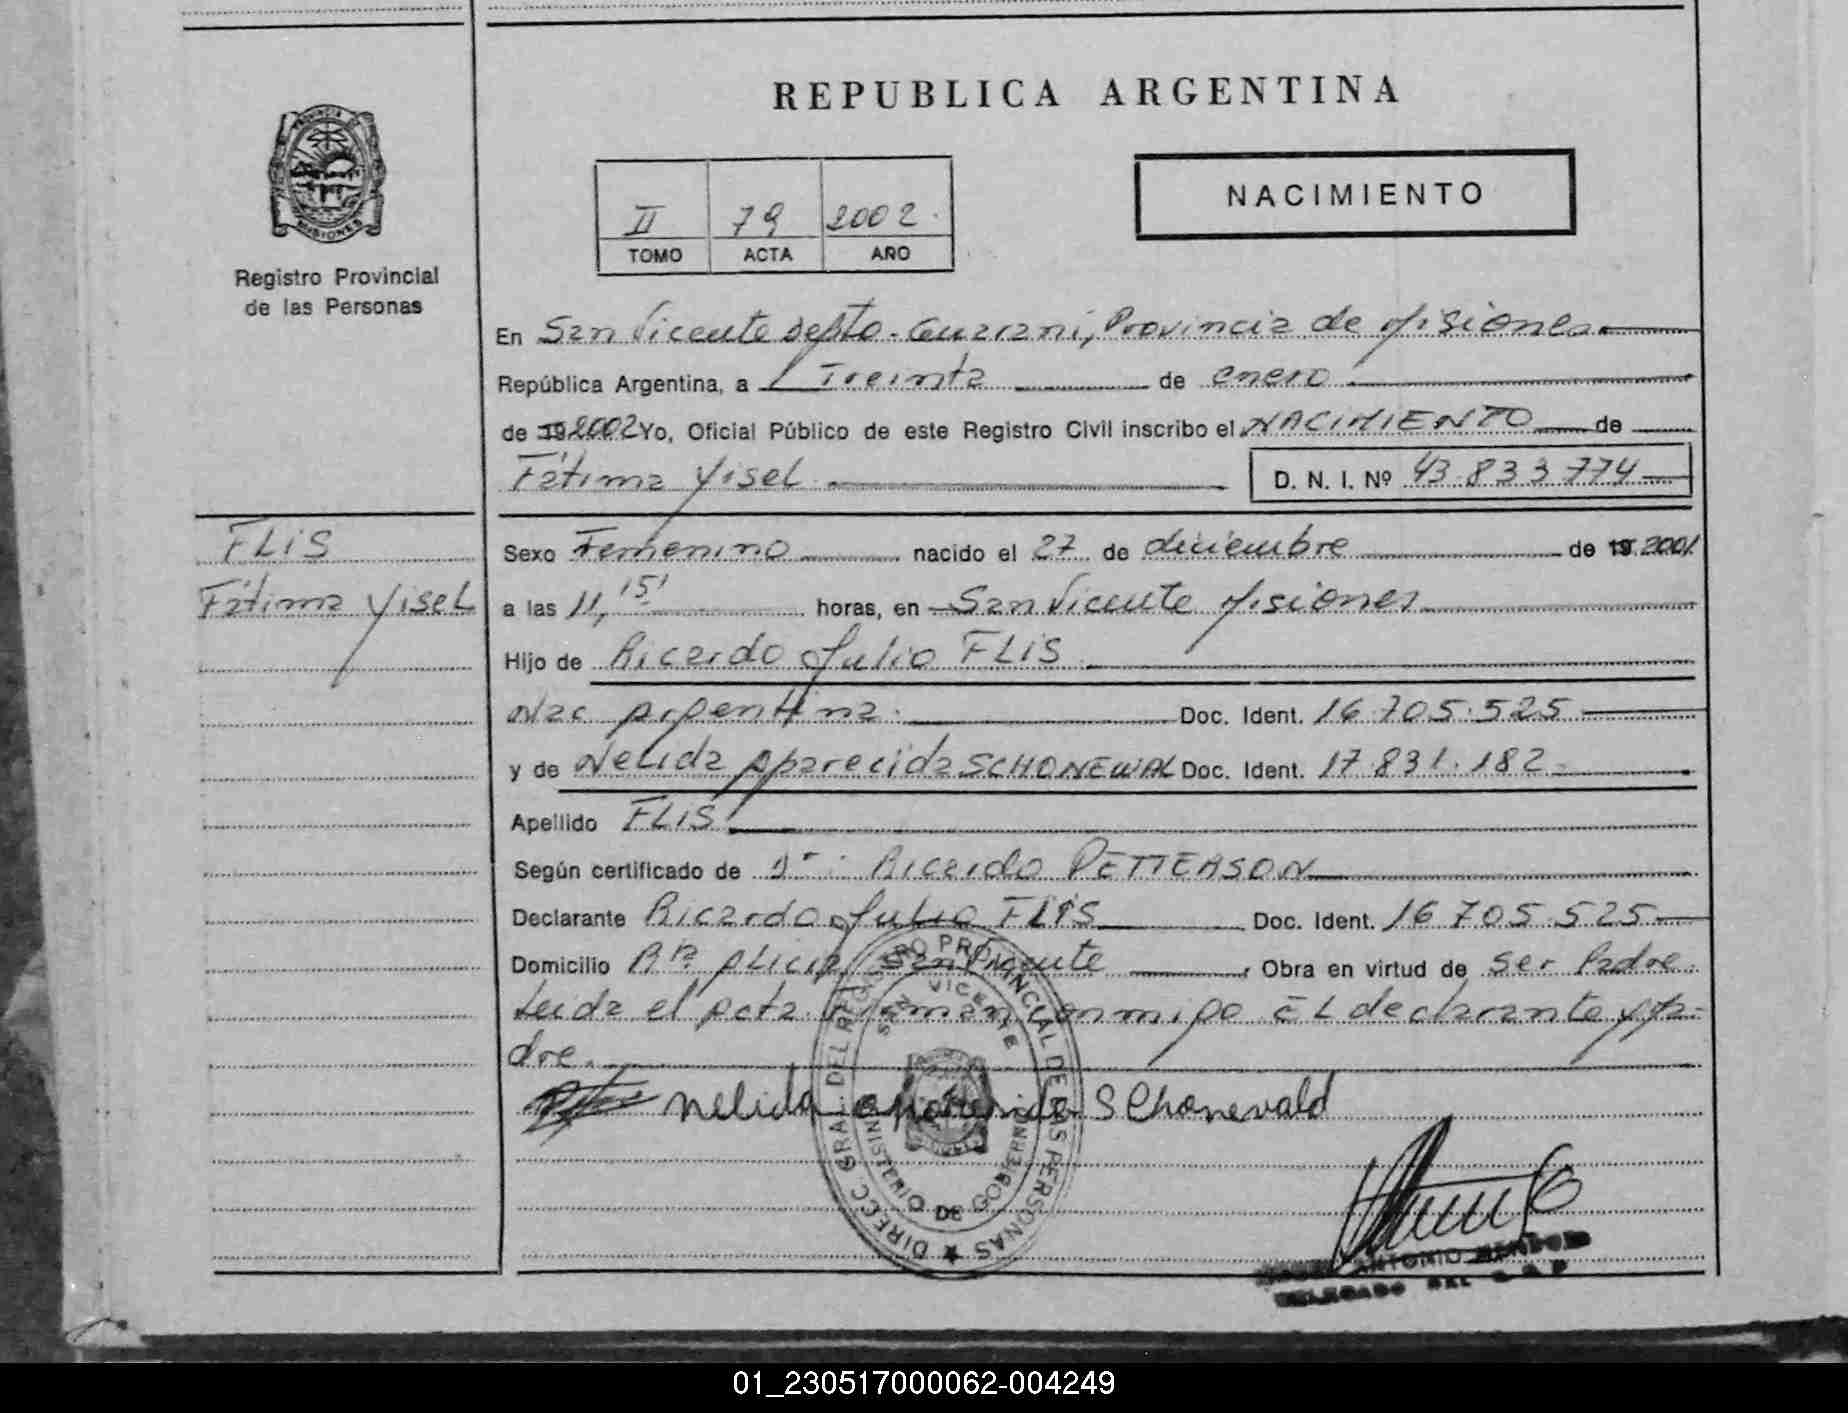 REPUBLICA ARGENTINA
PROVINCIA DE
MISIONES
Registro Provincial
de las Personas
II 79 2002
TOMO ACTA AÑO
NACIMIENTO
En San Vicente Depto. Guarani, Provincia de Misiones
República Argentina, a Treinta de enero
de 19 2002 Yo, Oficial Público de este Registro Civil inscribo el NACIMIENTO de
Fátima Yisel D. N. I. Nº 43.833.774
FLiS
Fátima YiseL
Sexo Femenino nacido el 27 de diciembre de 19 2001
a las 11,15' horas, en San Vicente Misiones
Hijo de Ricardo Julio FLiS
Nac Argentina Doc. Ident. 16.705.525
y de Nelida Aparecida SCHONEWAL Doc. Ident. 17.831.182
Apellido FLiS
Según certificado de Dr. Ricardo PETTERSON
Declarante Ricardo Julio FLiS Doc. Ident. 16.705.525
Domicilio Bº Alicia San Vicente, Obra en virtud de ser Padre
Leida el Acta Firman conmigo EL declarante y Ma-
dre.
Nelida aparecida SChonevald
DIREC. GRAL. DEL REGISTRO PROVINCIAL DE LAS PERSONAS
SAN VICENTE
MINISTERIO DE GOBIERNO
ANTONIO
DELEGADO DEL
01_230517000062-004249